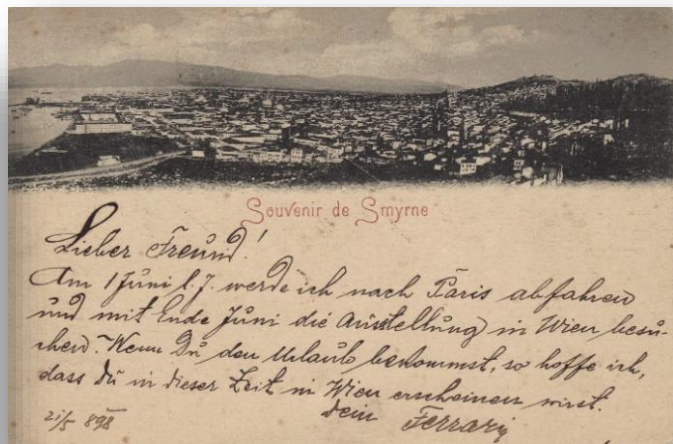 Souvenir de Smyrne
Lieber Freund!
Am 1 Juni l. J. werde ich nach Paris abfahren
und mit Ende Juni die Ausstellung in Wien besu-
chen. Wenn Du den Urlaub bekommst, so hoffe ich,
dass Du in dieser Zeit in Wien erscheinen wirst.
Dein Ferrari
21/5 898